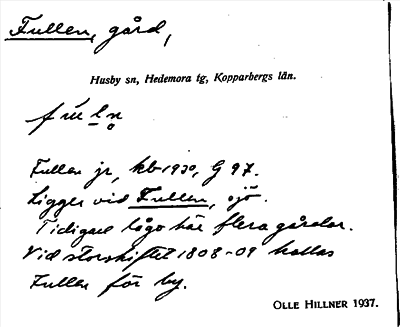 Fullen, gård,
Husby sn, Hedemora tg, Kopparbergs län.
Fullen jr, kb 1930, G 97.
Ligger vid Fullen, sjö.
Tidigare lågo här flera gårdar.
Vid storskiftet 1808-09 kallas
Fullen för by.
OLLE HILLNER 1937.